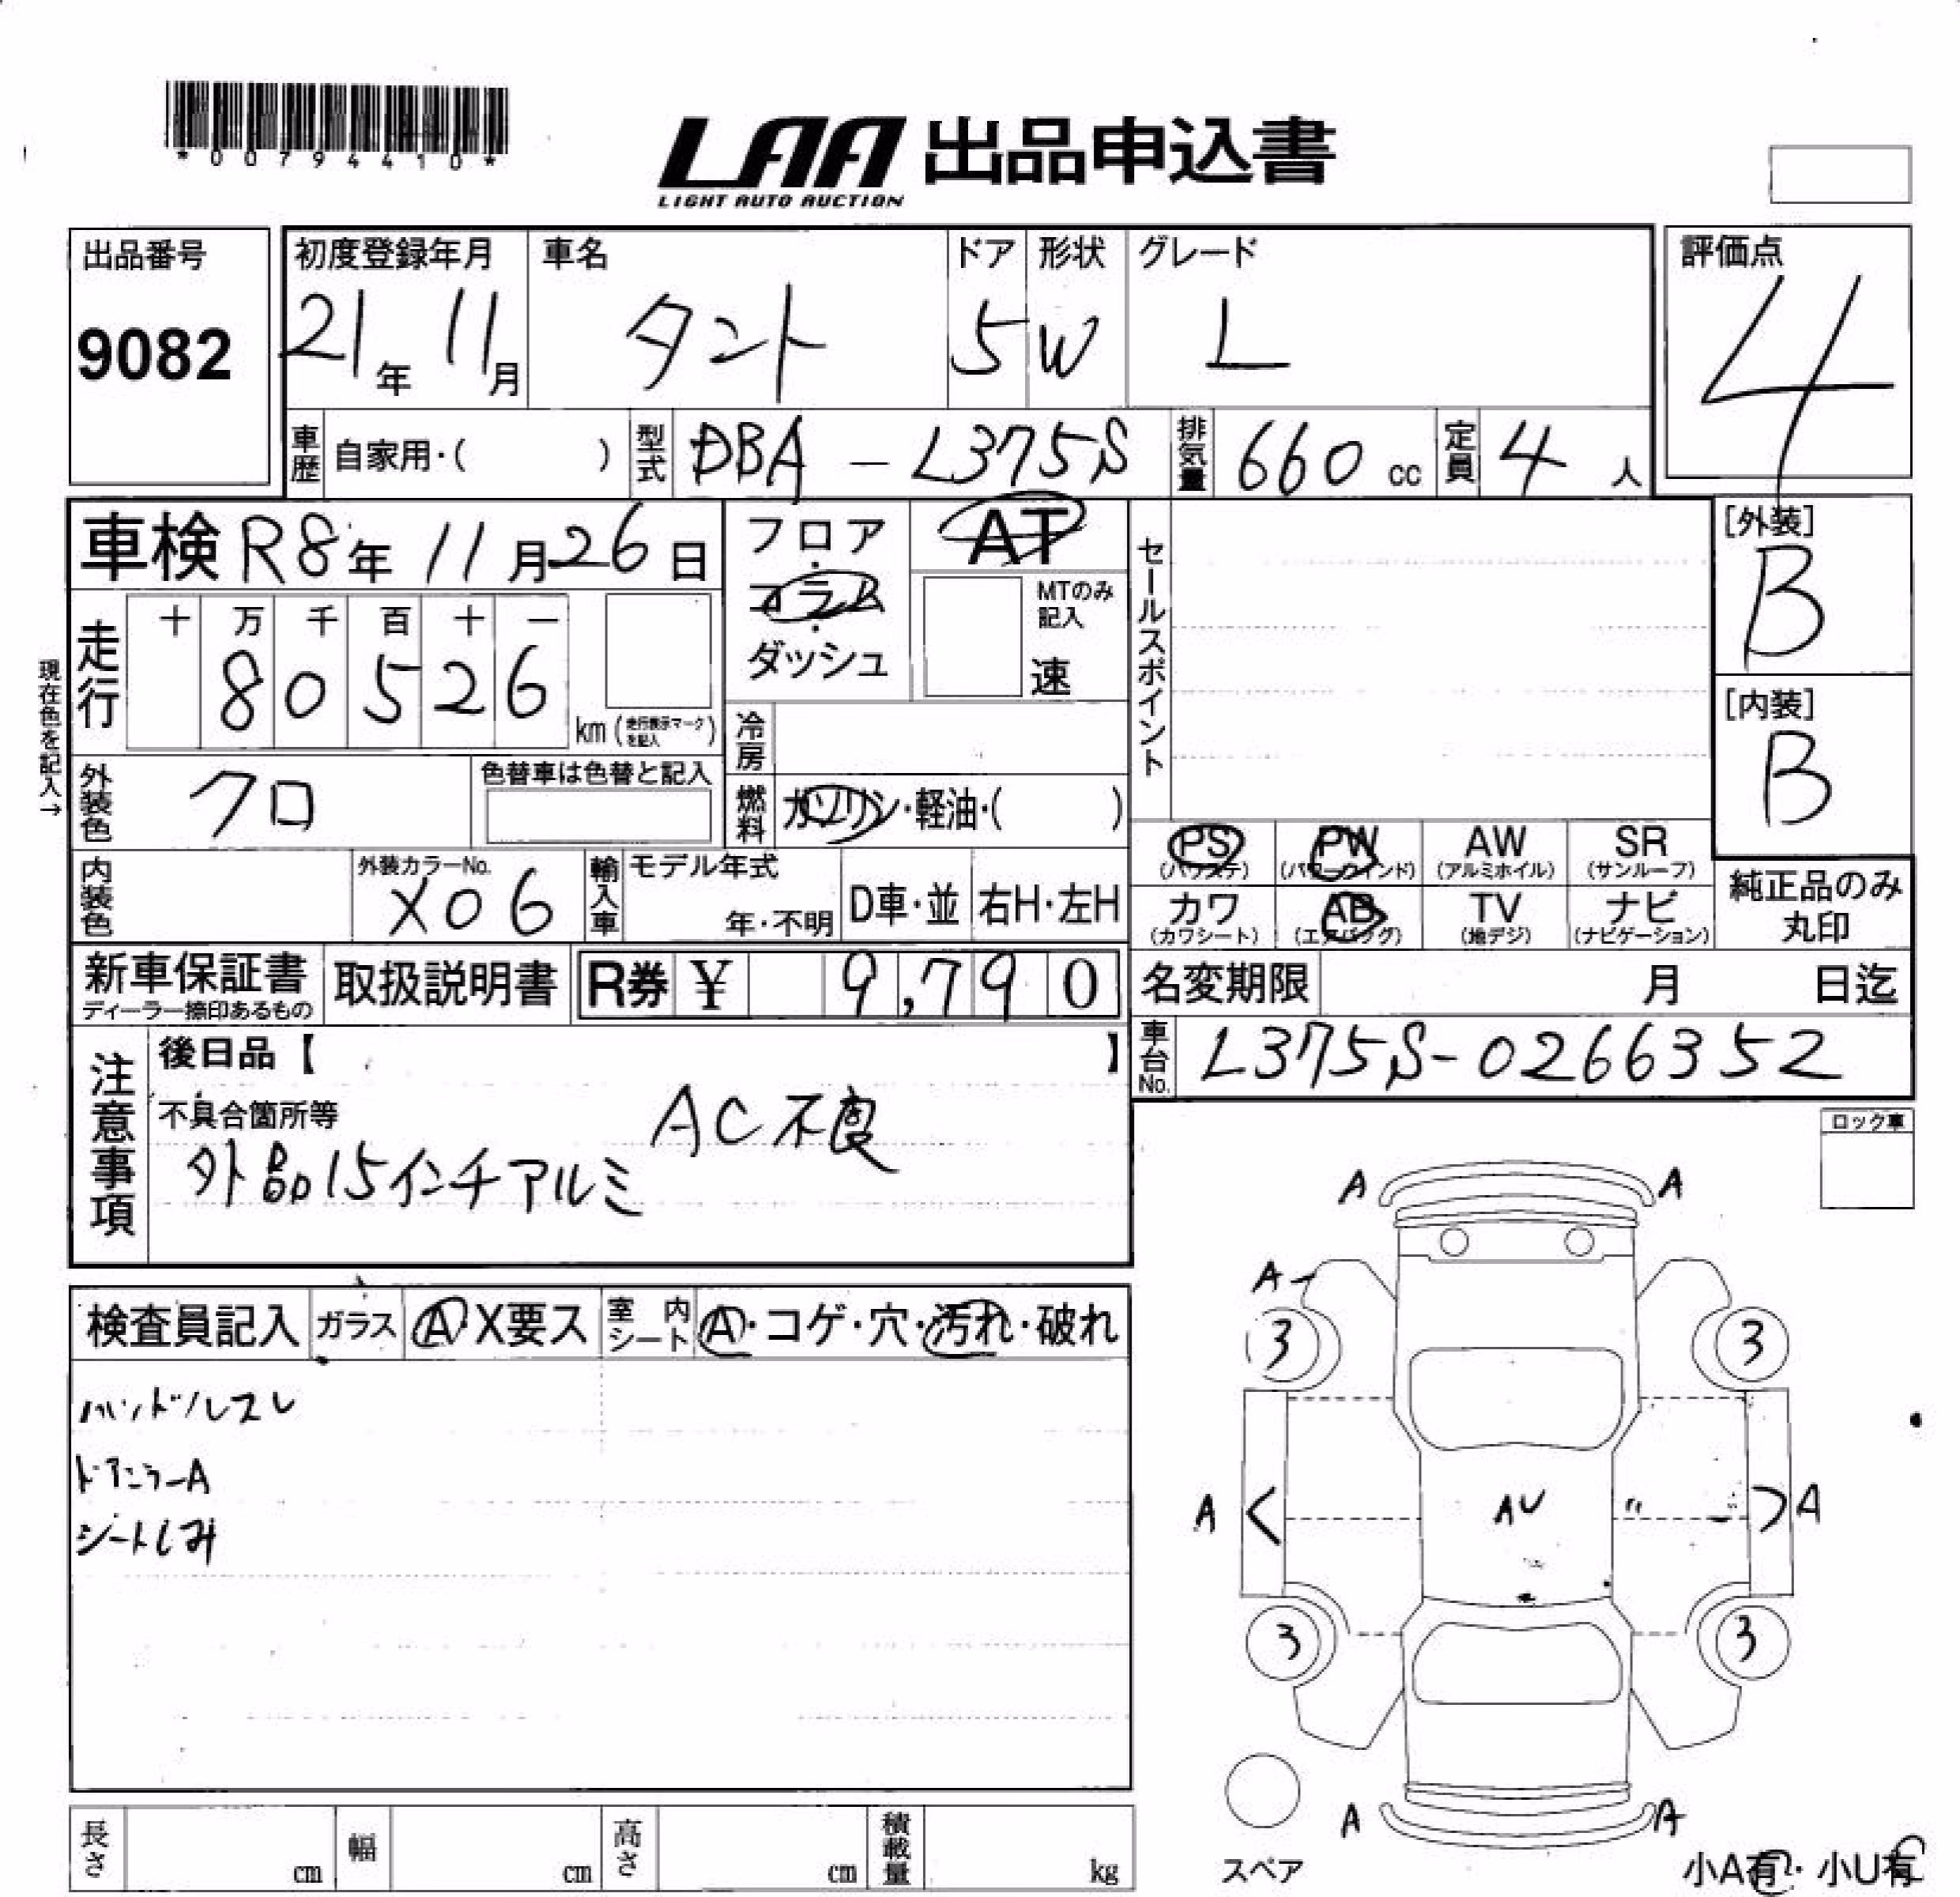 *00794410*
LAA 出品申込書
LIGHT AUTO AUCTION
出品番号 初度登録年月 車名 ドア 形状 グレード 評価点
9082 21年 11月 タント 5 W L 4
車歴 自家用・( ) 型式 DBA-L375S 排気量 660 cc 定員 4人
車検 R8年 11月26日 フロア・コラム・ダッシュ AT セールスポイント [外装]
B
MTのみ記入
速
現在色を記入→
走行 十 万 千 百 十 一
8 0 5 2 6 km (走行表示マークを記入)
[内装]
B
冷房
外装色 クロ 色替車は色替と記入 燃料 ガソリン・軽油・( )
PS PW AW SR
(パワステ) (パワーウインド) (アルミホイル) (サンルーフ)
内装色 外装カラーNo. X06 輸入車 モデル年式 年・不明 D車・並 右H・左H
カワ AB TV ナビ 純正品のみ丸印
(カワシート) (エアバッグ) (地デジ) (ナビゲーション)
新車保証書 取扱説明書 R券 ¥ 9,790 名変期限 月 日迄
ディーラー捺印あるもの
注意事項 後日品【 】 車台No. L375S-0266352
不具合箇所等 AC不良
外品15インチアルミ
ロック車
検査員記入 ガラス A・X要ス 室内シート A・コゲ・穴・汚れ・破れ
ハンドルスレ
ドアミラーA
シートしみ
A A
A
3 3
A < AU 〃 > A
3 3
A A
スペア
小A有・小U有
長さ cm 幅 cm 高さ cm 積載量 kg